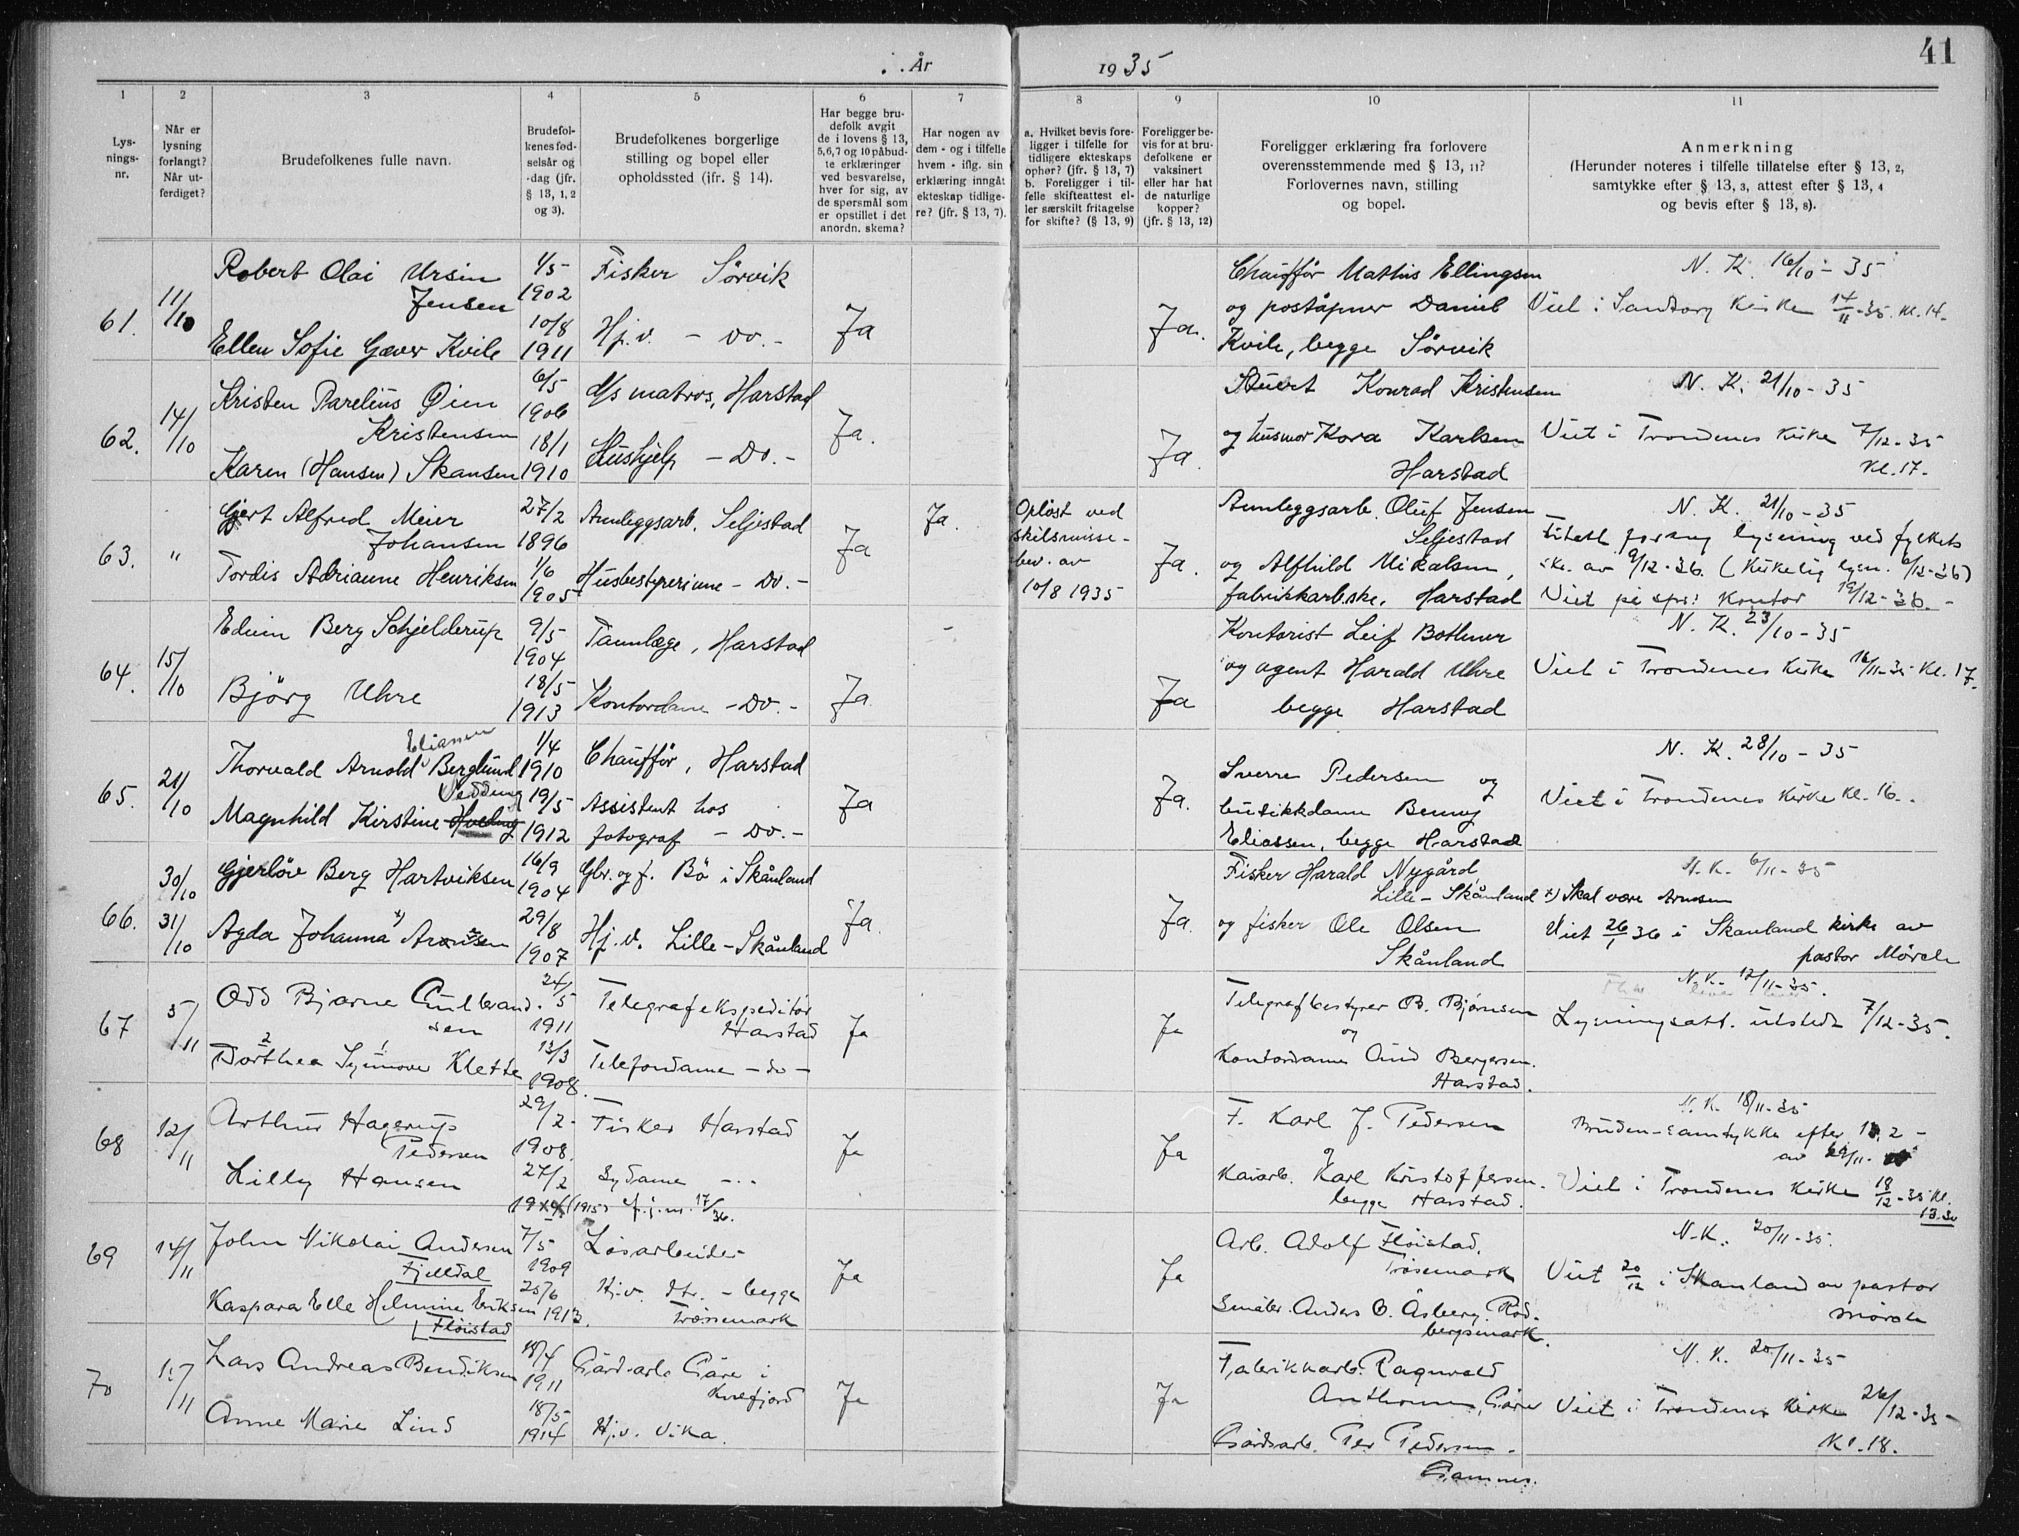 År 1935
41
1 2 3 4 5 6 7 8 9 10 11
Lys-
nings-
nr.
Når er
lysning
forlangt?
Når ut-
ferdiget?
Brudefolkenes fulle navn.
Brudefol-
kenes fød-
selsår og
-dag (jfr.
§ 13, 1, 2
og 3).
Brudefolkenes borgerlige
stilling og bopel eller
opholdssted (ifr. § 14).
Har begge bru-
defolk avgit
de i lovens § 13,
5,6,7 og 10 påbud-
te erklæringer
ved besvarelse,
hver for sig, av
de spørsmål som
er opstillet i det
anordn. skema?
Har nogen av
dem - og i tilfelle
hvem - iflg. sin
erklæring inngåt
ekteskap tidlige-
re? (jfr. § 13, 7).
a. Hvilket bevis fore-
ligger i tilfelle for
tidligere ekteskaps
ophør? (jfr. § 13, 7)
b. Foreligger i til-
felle skifteattest el-
ler særskilt fritagelse
for skifte? (§ 13, 9)
Foreligger be-
vis for at bru-
defolkene er
vaksinert
eller har hat
de naturlige
kopper?
(jfr. § 13, 12)
Foreligger erklæring fra forlovere
overensstemmende med § 13, 11?
Forlovernes navn, stilling
og bopel.
Anmerkning
(Herunder noteres i tilfelle tillatelse efter § 13, 2,
samtykke efter § 13, 3, attest efter § 13, 4
og bevis efter § 13, 8).
61. 11/10
Robert Olai Ursin
Jensen
1/5
1902
Fisker Sørvik
Ellen Sofie Gæver Kvile
10/8
1911
Hj.v. - do. -
Ja
Ja.
Chauffør Mathis Ellingsen
og poståpner Daniel
Kvile, begge Sørvik
N. K. 16/10 - 35
Viet i Sandtorg Kirke 14/11-35. Kl. 14.
62. 14/10
Kristen Parelius Øien
Kristensen
6/5
1906
d/s matros, Harstad
Karen (Hansen) Skansen
18/1
1910
Hushjelp - Do. -
Ja.
Ja.
Stuert Konrad Kristensen
og husmor Kora Karlsen
Harstad
N. K. 21/10 - 35
Viet i Trondenes Kirke 7/12-35
Kl. 17.
63. "
Gjert Alfred Meier
Johansen
27/2
1896
Anleggsarb. Seljestad
Tordis Adrianne Henriksen
1/6
1905
Husbestyrerinne - Do. -
Ja
Ja.
Opløst ved
skilsmisse-
bev. av
10/8 1935
Ja.
Anleggsarb. Oluf Jensen
Seljestad
og Alfhild Mikalsen,
fabrikkarb.ske, Harstad
N. K. 21/10 - 35
lysning ved fylkets
av 9/12-36. (Kirkelig lysn. 6/12-36)
Viet på kontor 19/12-36. -
64. 15/10
Edvin Berg Schjelderup
9/5
1904
Tannlæge, Harstad
Bjørg Uhre
18/5
1913
Kontordame - Do. -
Ja.
-
Ja
Kontorist Leif Bothner
og agent Harald Uhre
begge Harstad
N. K. 23/10 - 35
Viet i Trondenes Kirke 16/11-35 Kl. 17.
65. 21/10
Eliassen
Thorvald Arnold Berglund
1/4
1910
Chauffør, Harstad
Vedding
Magnhild Kirstine Hveding
19/5
1912
Assistent hos
fotograf - Do. -
Ja
Ja.
Sverre Pedersen og
butikkdame Benny
Eliassen, begge Harstad
N. K. 28/10 - 35
Viet i Trondenes Kirke Kl. 16.
66. 30/10
31/10
Gjerløv Berg Hartviksen
16/9
1904
Gbr. og f. Bø i Skånland
Agda Johanna x) Aronsen
29/8
1907
Hj.v. Lille-Skånland
Ja.
Ja.
Fisker Harald Nygård,
Lille-Skånland
og fisker Ole Olsen
Skånland
N. K. 6/11-35
x) Skal være Arnesen
Viet 26/1 36 i Skånland kirke av
pastor Mörch
67 5/11
Odd Bjarne Gulbrand-
sen
24/5
1911
Telegrafekspeditør
Harstad
2 1
Dorthea Synnøve Klette
13/3
1908.
Telefondame - do -
Ja
Ja
Telegrafbestyrer B. Bjørnsen
og
Kontordame Aud Bergersen.
Harstad.
N. K. 12/11-35.
Lysningsatt. utstedt 7/12-35.
68 12/11
Arthur Hagerup
Pedersen
29/2
1908.
Fisker Harstad
Lilly Hansen
27/2
1914 (1915) 17/36.
Sydame - "
Ja
Ja
F. Karl J. Pedersen
og
Kaiarb. Karl Kristoffersen.
begge Harstad.
N. K. 18/11-35
Bruden - samtykke efter 13, 2 -
av
Viet i Trondenes Kirke 18/12-35 Kl.
13.30
69 14/11
John Nikolai Andersen
Fjelldal
7/5
1909
Løsarbeider
Kaspara Elle Helmine Eriksen
Fløistad
25/6
1913.
Hj.v. dtr. - begge
Trøssemark
Ja
Ja
Arb. Adolf Fløistad.
Trøsemark
Småbr. Anders O. Åsberg, Rød-
bergsmark.
N. K. 20/11-35.
Viet 20/12 i Skånland av pastor
Mörch
70 17/11
Lars Andreas Bendiksen
18/4
1911
Gårdsarb. Gåre i
Kvefjord
Anne Marie Lind
18/5
1914
Hj.v. Vika.
Ja
Ja
Fabrikkarb. Ragnvald
Anthonsen, Gåre
Gårdsarb. Per Pedersen.
Gamnes.
N. K. 20/11-35
Viet i Trondenes Kirke 26/12-35-
Kl. 18.